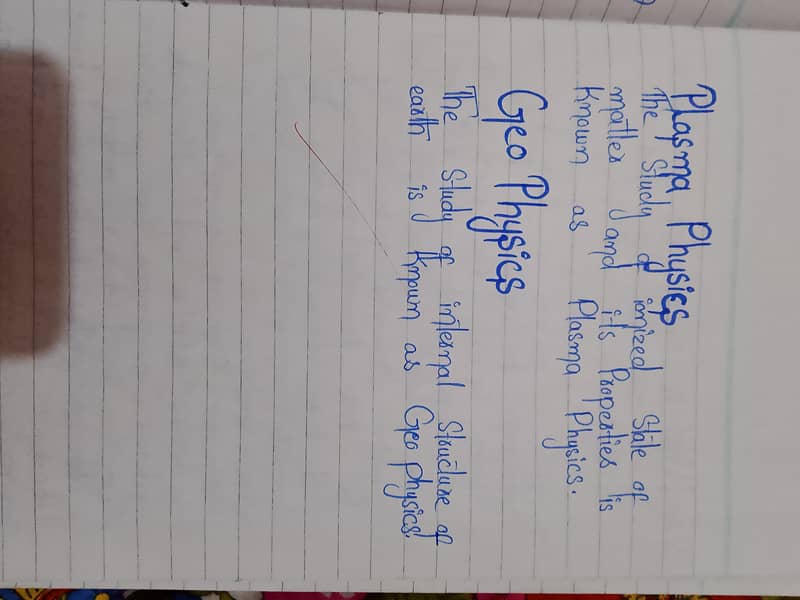 Plasma Physics
The Study of ionized State of
matter and its Properties is
Known as Plasma Physics.
Geo Physics
The Study of internal Structure of
earth is Known as Geo physics.